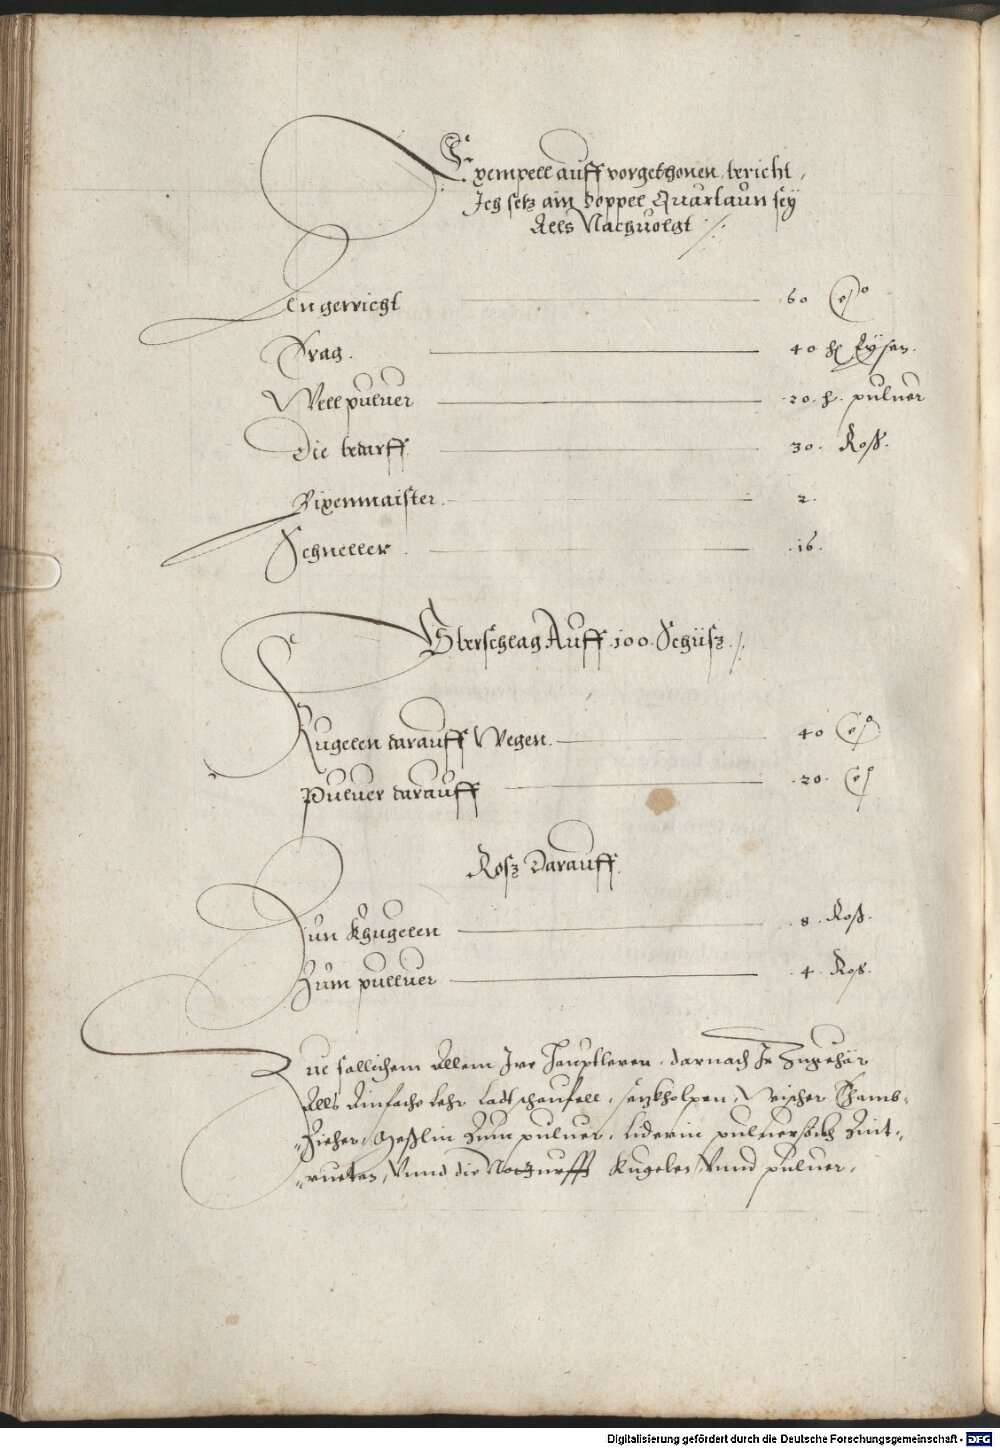 Exempell auff vorgethonen bericht,
Ich setz ain Doppel Quartaun sey
Alls Nachuolgt
An gewicht 60
Trag. 40 ℔ Eysen.
Well puluer 20. ℔. puluer
Die bedarff 30. Roß.
Pixenmaister. 2.
Schneller. 16.
Uberschlag Auff 100. Schüsz.
Kugelen darauff Wegen. 40
Puluer darauff 20.
Rosz Darauff.
Zun Khugelen 8. Roß.
Zum pulluer 4. Roß.
Zue sollichem Allem Ire Hauptleren. darnach Ir Zugehör
Alls Ainfache Lehr Ladtschaufell, setzkholpen, Wischer
Zieher, Zum puluer, Liderin puluersöckh Zint-
ruetten, Vnnd die Notturfft Kugelen Vnnd puluer.
Digitalisierung gefördert durch die Deutsche Forschungsgemeinschaft - DFG